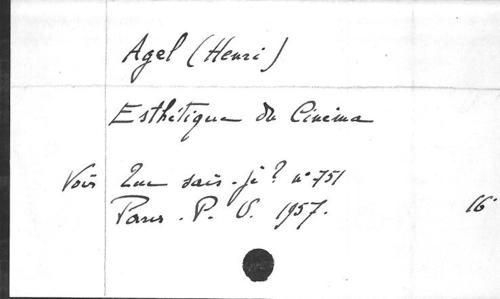 Agel (Henri)
Esthétique du Cinéma
Voir Que sais-je? n° 751
Paris. P. U. 1957. 16°